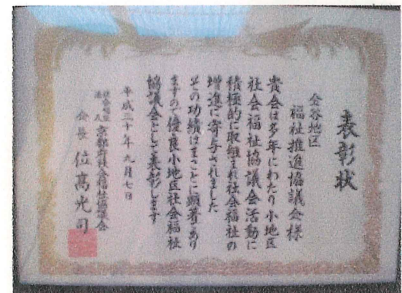 表彰状
金谷地区
福祉推進協議会様
貴会は多年にわたり小地区
社会福祉協議会活動に
積極的に取組まれ社会福祉の
増進に寄与されました
その功績はまことに顕著であり
ますので優良小地区社会福祉
協議会として表彰します
平成三十年九月七日
社会福祉法人 京都府社会福祉協議会
会長 位髙光司